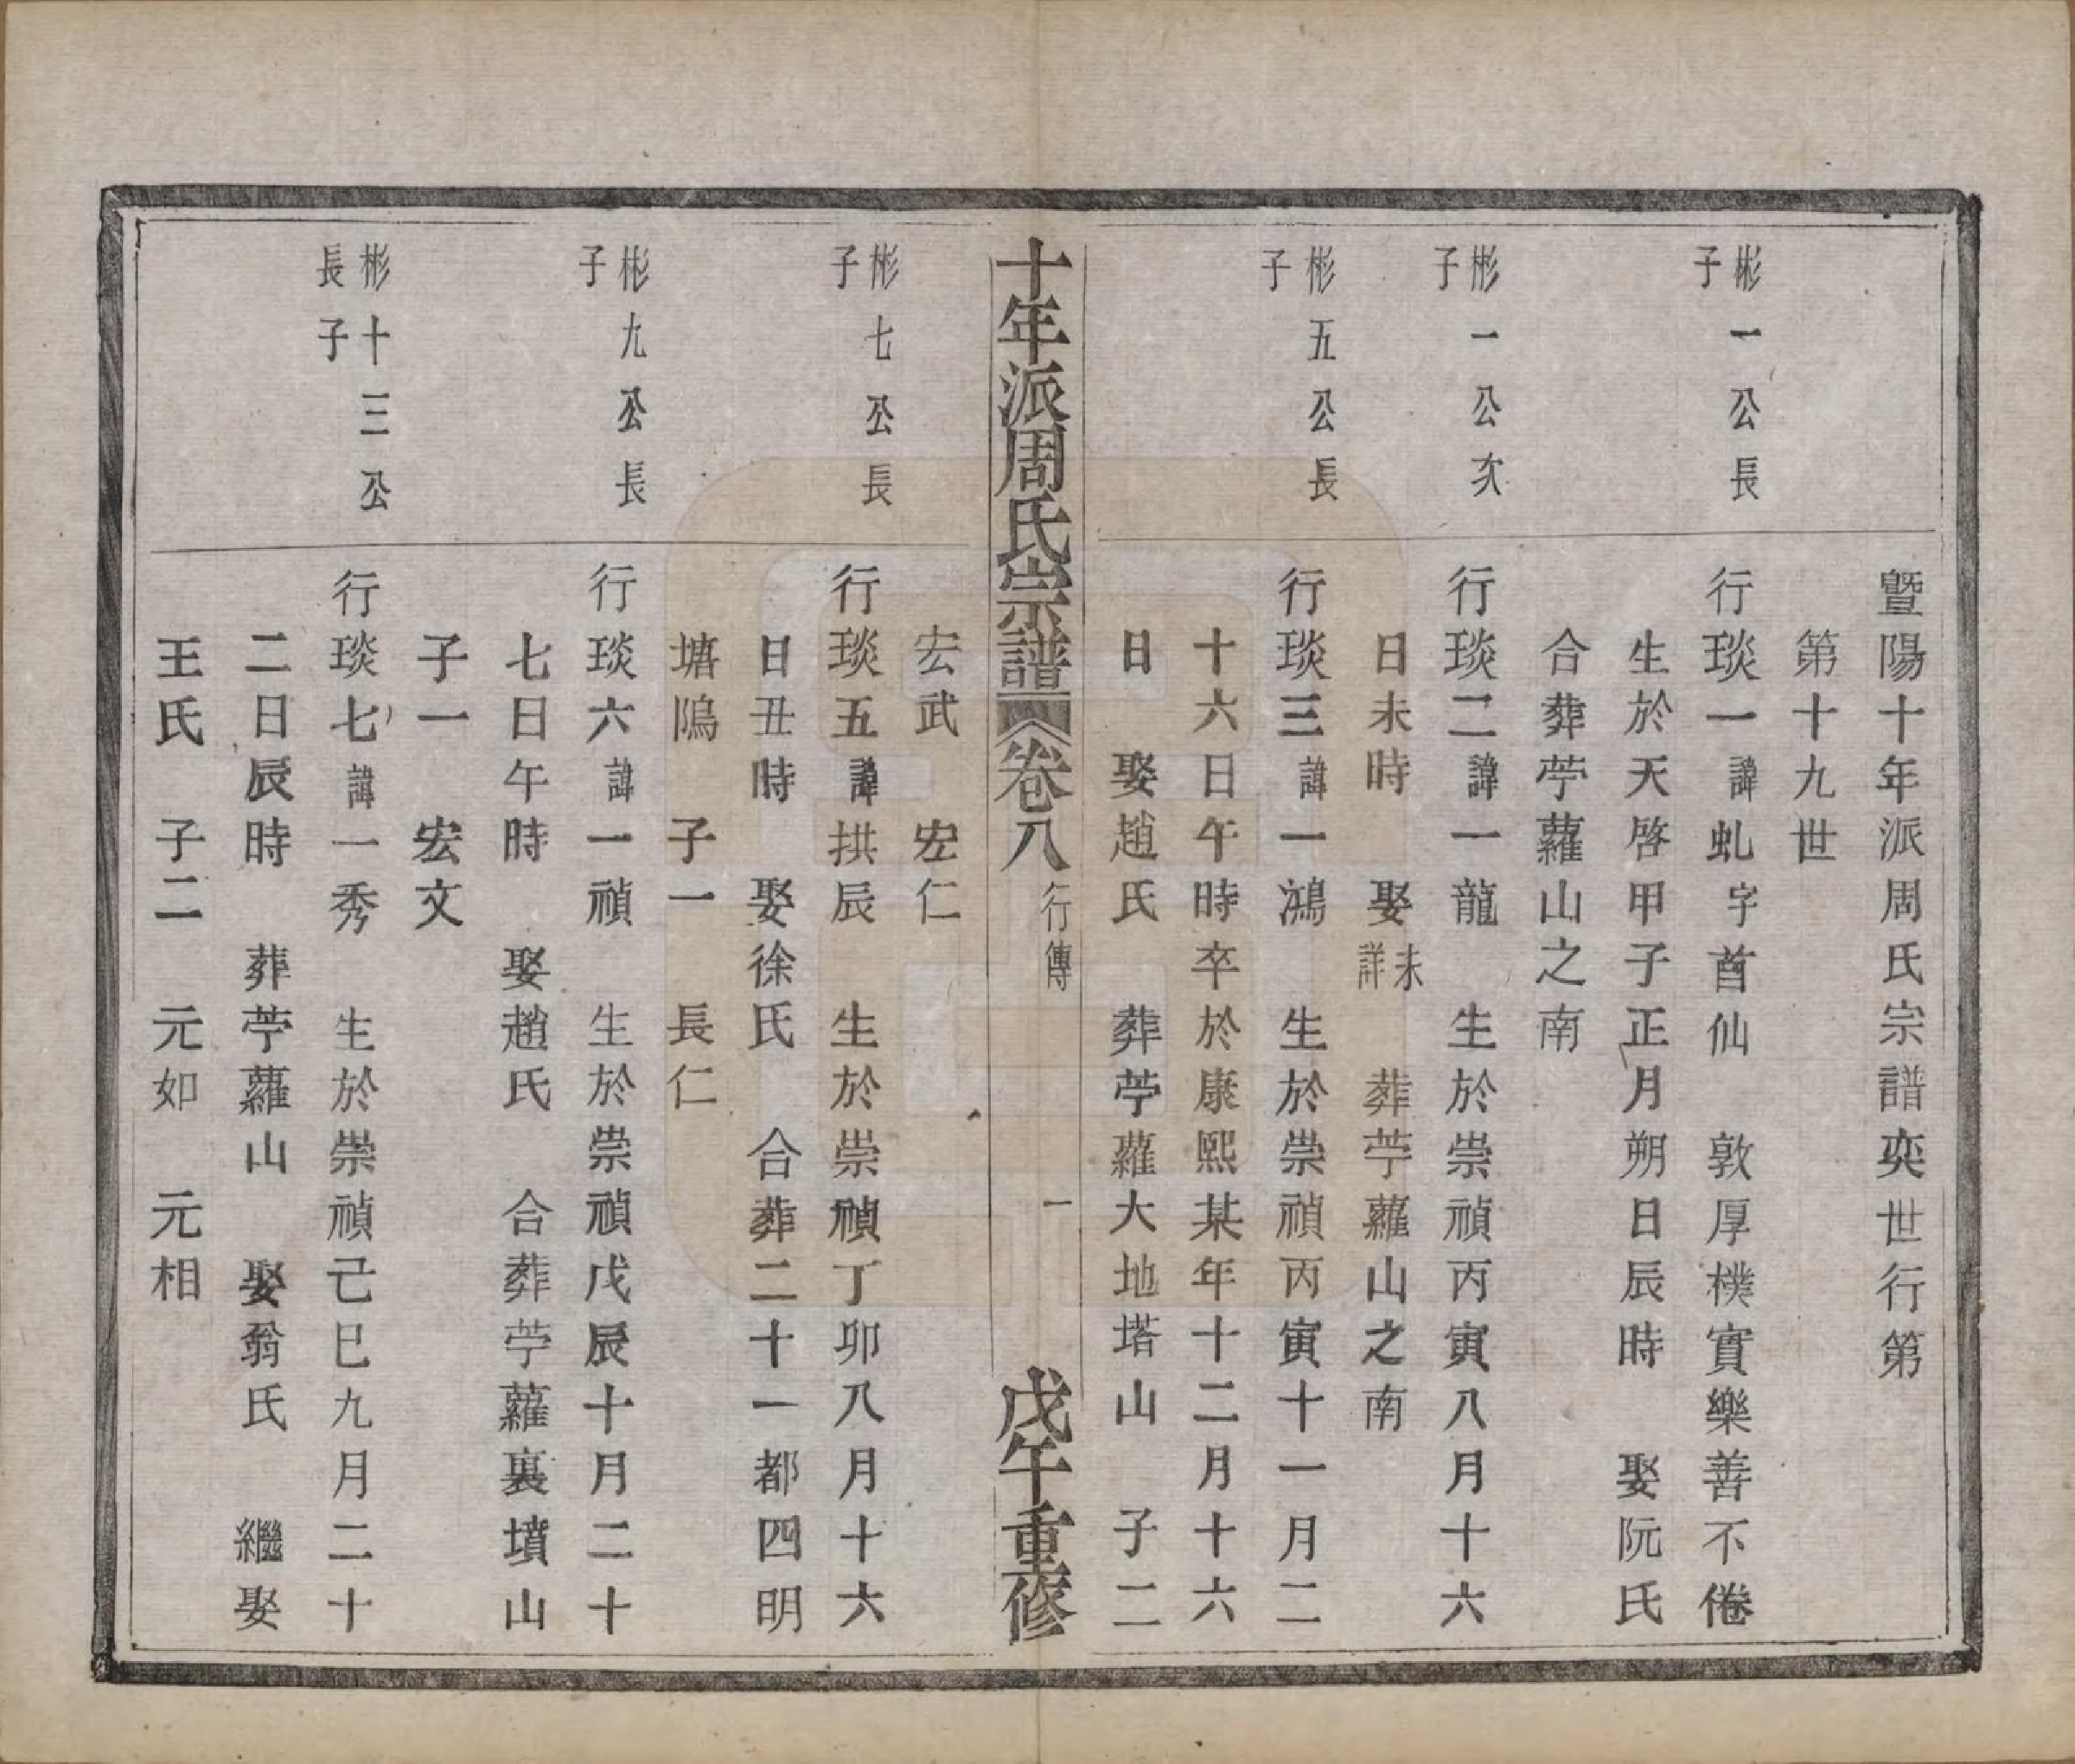 暨陽十年派周氏宗譜奕世行第
第十九世
彬一公長
子
行琰一諱虬字酋仙 敦厚樸實樂善不倦
生於天啓甲子正月朔日辰時 娶阮氏
合葬苧蘿山之南
彬一公次
子
行琰二諱一龍 生於崇禎丙寅八月十六
日未時 娶未詳 葬苧蘿山之南
彬五公長
子
行琰三諱一鴻 生於崇禎丙寅十一月二
十六日午時卒於康熙某年十二月十六
日 娶趙氏 葬苧蘿大地塔山 子二
十年派周氏宗譜 卷八 行傳 一 戊午重修
宏武 宏仁
彬七公長
子
行琰五諱拱辰 生於崇禎丁卯八月十六
日丑時 娶徐氏 合葬二十一都四明
塘隖 子一 長仁
彬九公長
子
行琰六諱一禎 生於崇禎戊辰十月二十
七日午時 娶趙氏 合葬苧蘿裏墳山
子一 宏文
彬十三公
長子
行琰七諱一秀 生於崇禎己巳九月二十
二日辰時 葬苧蘿山 娶翁氏 繼娶
王氏 子二 元如 元相